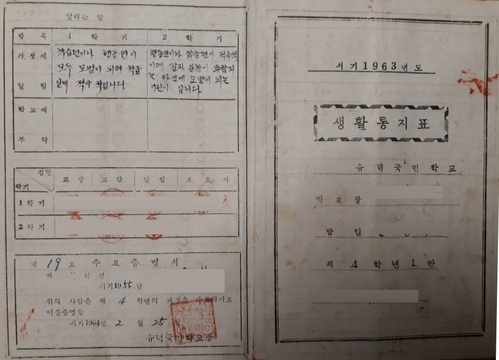 알리는 말
항목 1 학기 2 학기
가정에
학습면이나 행동면이
모두 모범이 되며 학급
일에 적극적입니다
행동면이나 학습면이
말과 실천이
모범이 되는
어린이 입니다.
알림
학교에
부탁
학기 검인 교장 교감 담임 보호자
1학기
2학기
제 19호 수료증명서
제 학년
서기 1955년
위의 사람은 제 4 학년의
이를 증명함
서기 196 년 2월 25일
유덕국민학교장
서기 1963년도
생활통지표
유덕국민학교
학교장
담임
제 4 학년 1 반